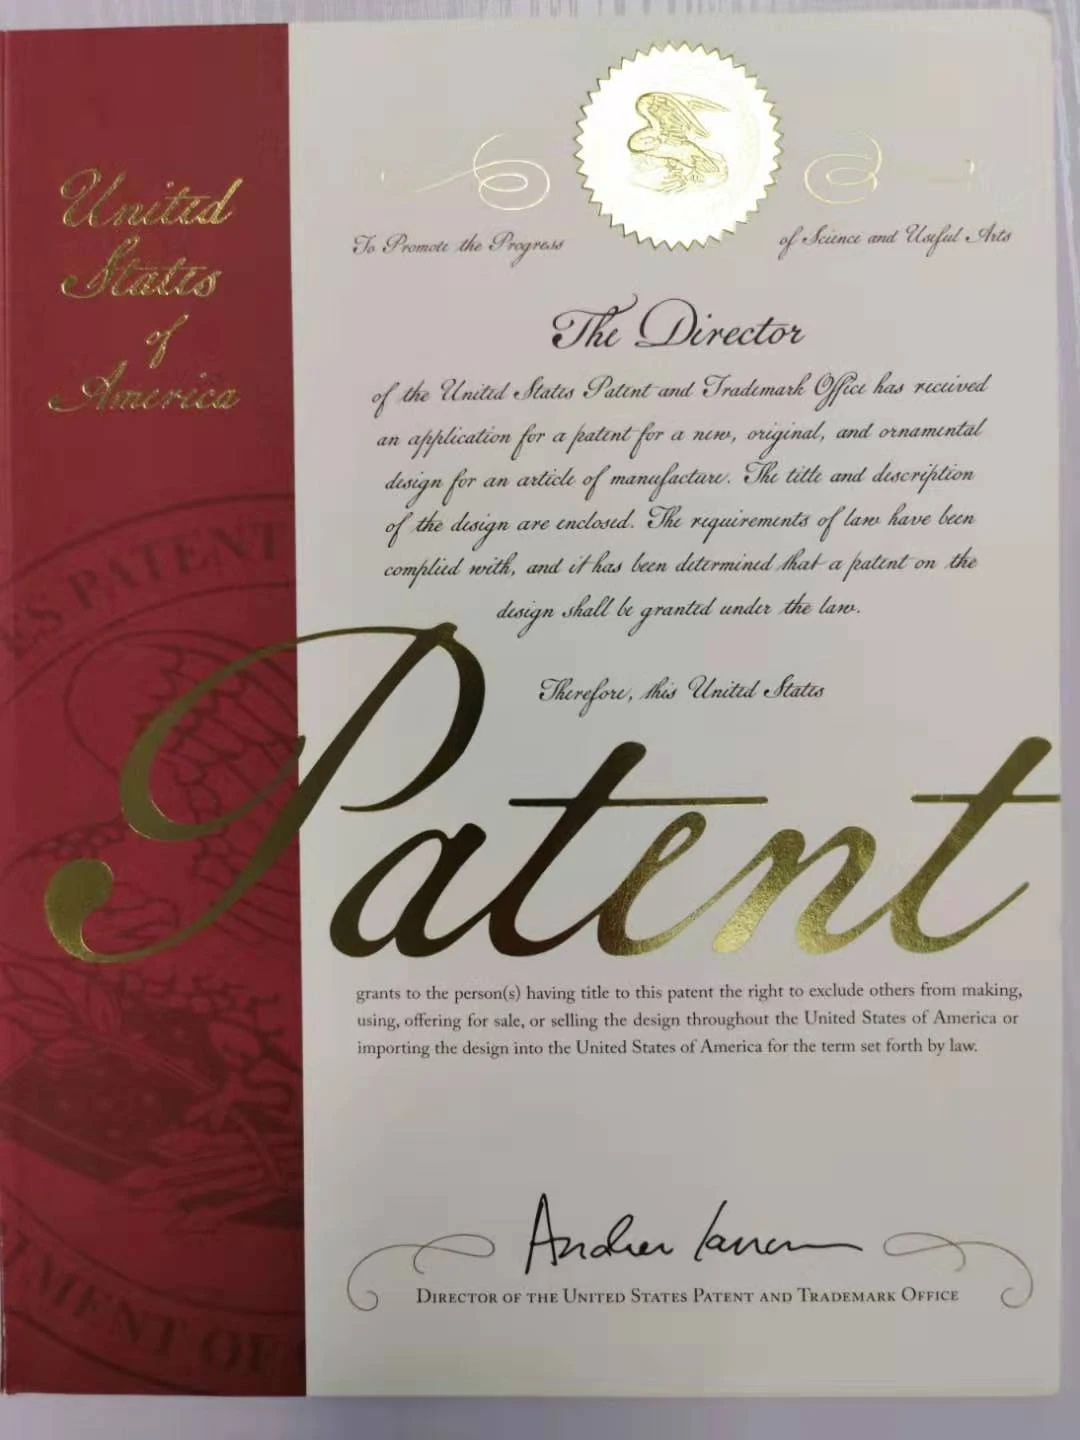 United
States
of
America
To Promote the Progress
of Science and Useful Arts
The Director
of the United States Patent and Trademark Office has received
an application for a patent for a new, original, and ornamental
design for an article of manufacture. The title and description
of the design are enclosed. The requirements of law have been
complied with, and it has been determined that a patent on the
design shall be granted under the law.
Therefore, this United States
Patent
grants to the person(s) having title to this patent the right to exclude others from making,
using, offering for sale, or selling the design throughout the United States of America or
importing the design into the United States of America for the term set forth by law.
DIRECTOR OF THE UNITED STATES PATENT AND TRADEMARK OFFICE
ES PATENT
TMENT OF